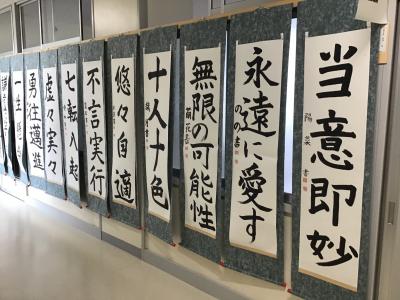 当意即妙
永遠に愛す
のの書
無限の可能性
十人十色
悠々自適
不言実行
七転八起
虚々実々
勇往邁進
一生